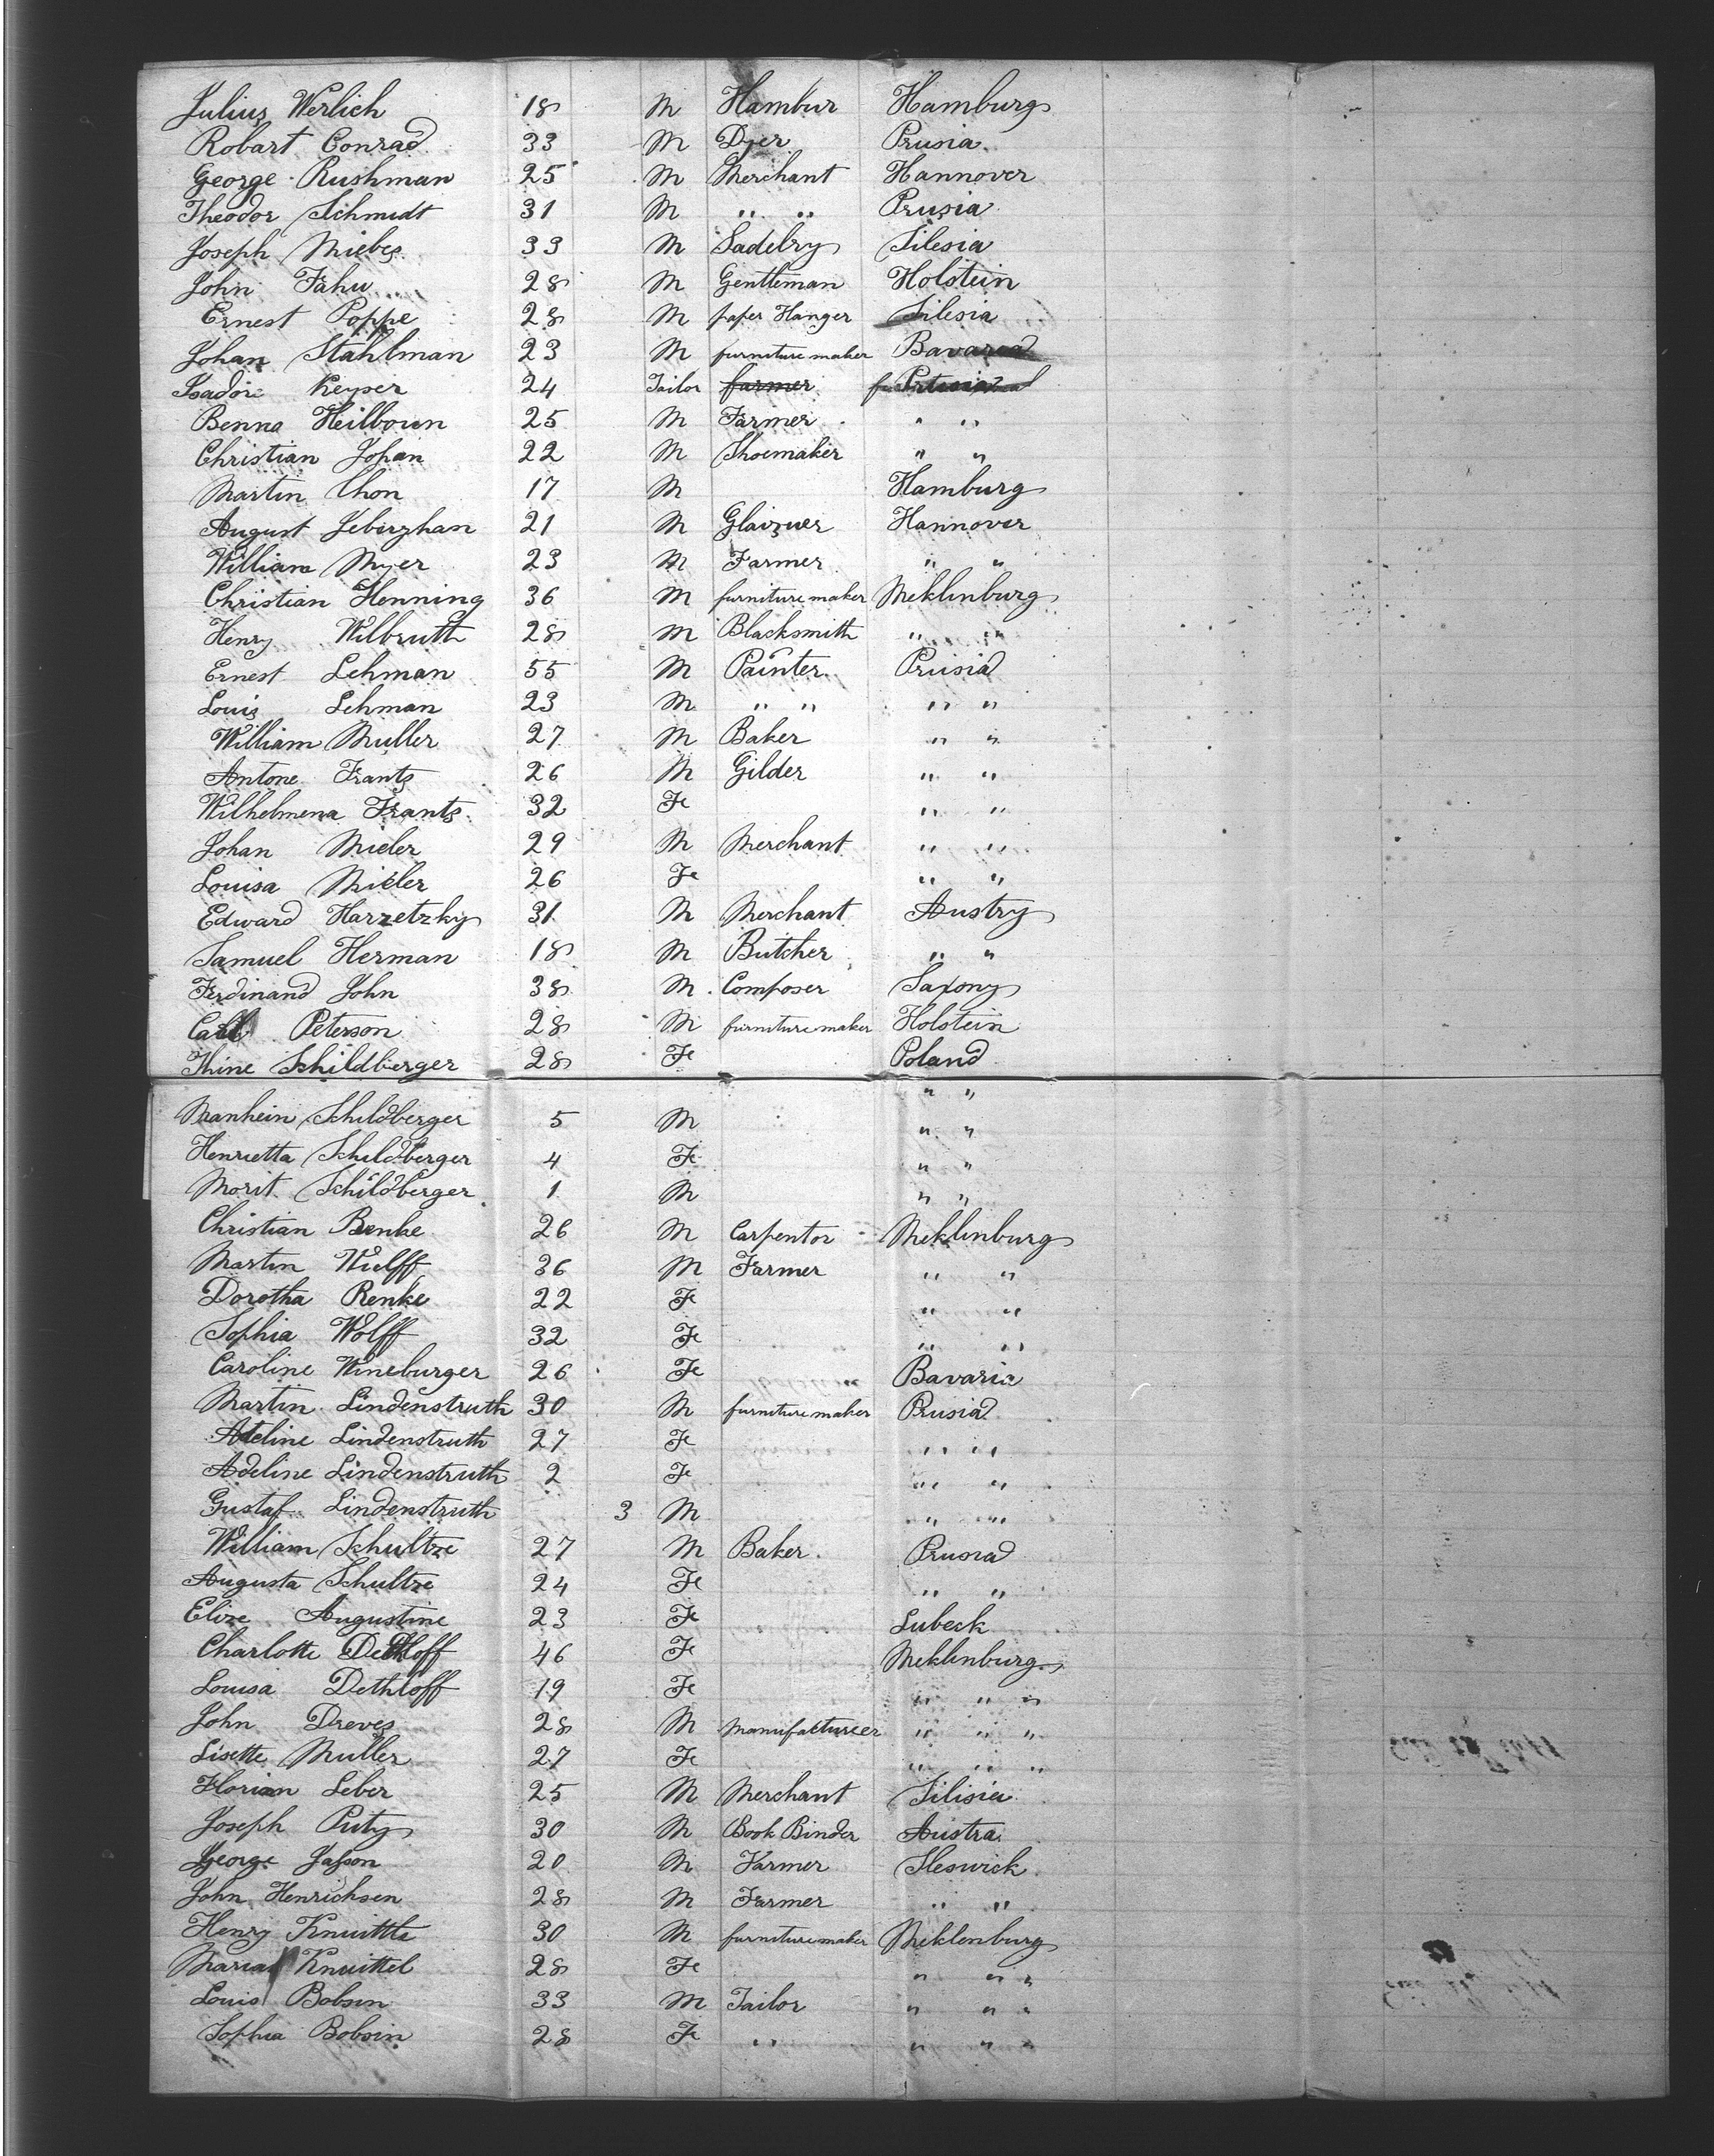 Julius Werlich 18 M Hambur Hamburg
Robart Conrad 33 M Dyer Prusia
George Rushman 25 M Merchant Hannover
Theodor Schmidt 31 M " " Prusia
Joseph Miebes 33 M Sadelry Silesia
John Fahu 28 M Gentleman Holstein
Ernest Poppe 28 M paper Hanger Silesia
Johan Stahlman 23 M furniture maker Bavaria
Isador Keyser 24 Tailor farmer
Benna Heilborun 25 M Farmer " "
Christian Johan 22 M Shoemaker " "
Martin Chon 17 M Hamburg
August 21 M Hannover
William Myer 23 M Farmer " "
Christian Henning 36 M furniture maker Meklinburg
Henry Wilbruth 28 M Blacksmith " "
Ernest Lehman 55 M Painter Prusia
Louis Lehman 23 M " " " "
William Muller 27 M Baker " "
Antone Frants 26 M Gilder " "
Wilhelmena Frants 32 Fe " "
Johan Mieler 29 M Merchant " "
Louisa Mieler 26 Fe " "
Edward Harzetzky 31 M Merchant Austry
Samuel Herman 18 M Butcher " "
Ferdinand John 38 M Composer Saxony
Carl Peterson 28 M furniture maker Holstein
Thine Schildberger 28 Fe Poland
" "
Manhein Schildberger 5 M " "
Henrietta Schildberger 4 Fe " "
Morit Schildberger 1 M " "
Christian Renke 26 M Carpentor Meklinburg
Martin Wulff 36 M Farmer " "
Dorotha Renke 22 Fe " "
Sophia Wolff 32 Fe " "
Caroline Wineburger 26 Fe Bavaria
Martin Lindenstruth 30 M furniture maker Prusia
Adeline Lindenstruth 27 Fe " "
Adeline Lindenstruth 2 Fe " "
Gustaf Lindenstruth 3 M " "
William Schultze 27 M Baker Prusia
Augusta Schultze 24 Fe " "
Elize Augustine 23 Fe Lubeck
Charlotte Dethloff 46 Fe Meklinburg
Louisa Dethloff 19 Fe " " "
John Dreves 28 M Manufactureer " " "
Lisette Muller 27 Fe " " "
Florian Leber 25 M Merchant Silisia
Joseph Puty 30 M Book Binder Austra
George Jasson 20 M Farmer Sleswick
John Henrichsen 28 M Farmer " "
Henry Knuittle 30 M furniture maker Meklenburg
Maria Knuittel 28 Fe " " "
Louis Bobsin 33 M Tailor " " "
Sophia Bobsin 28 Fe " " " "